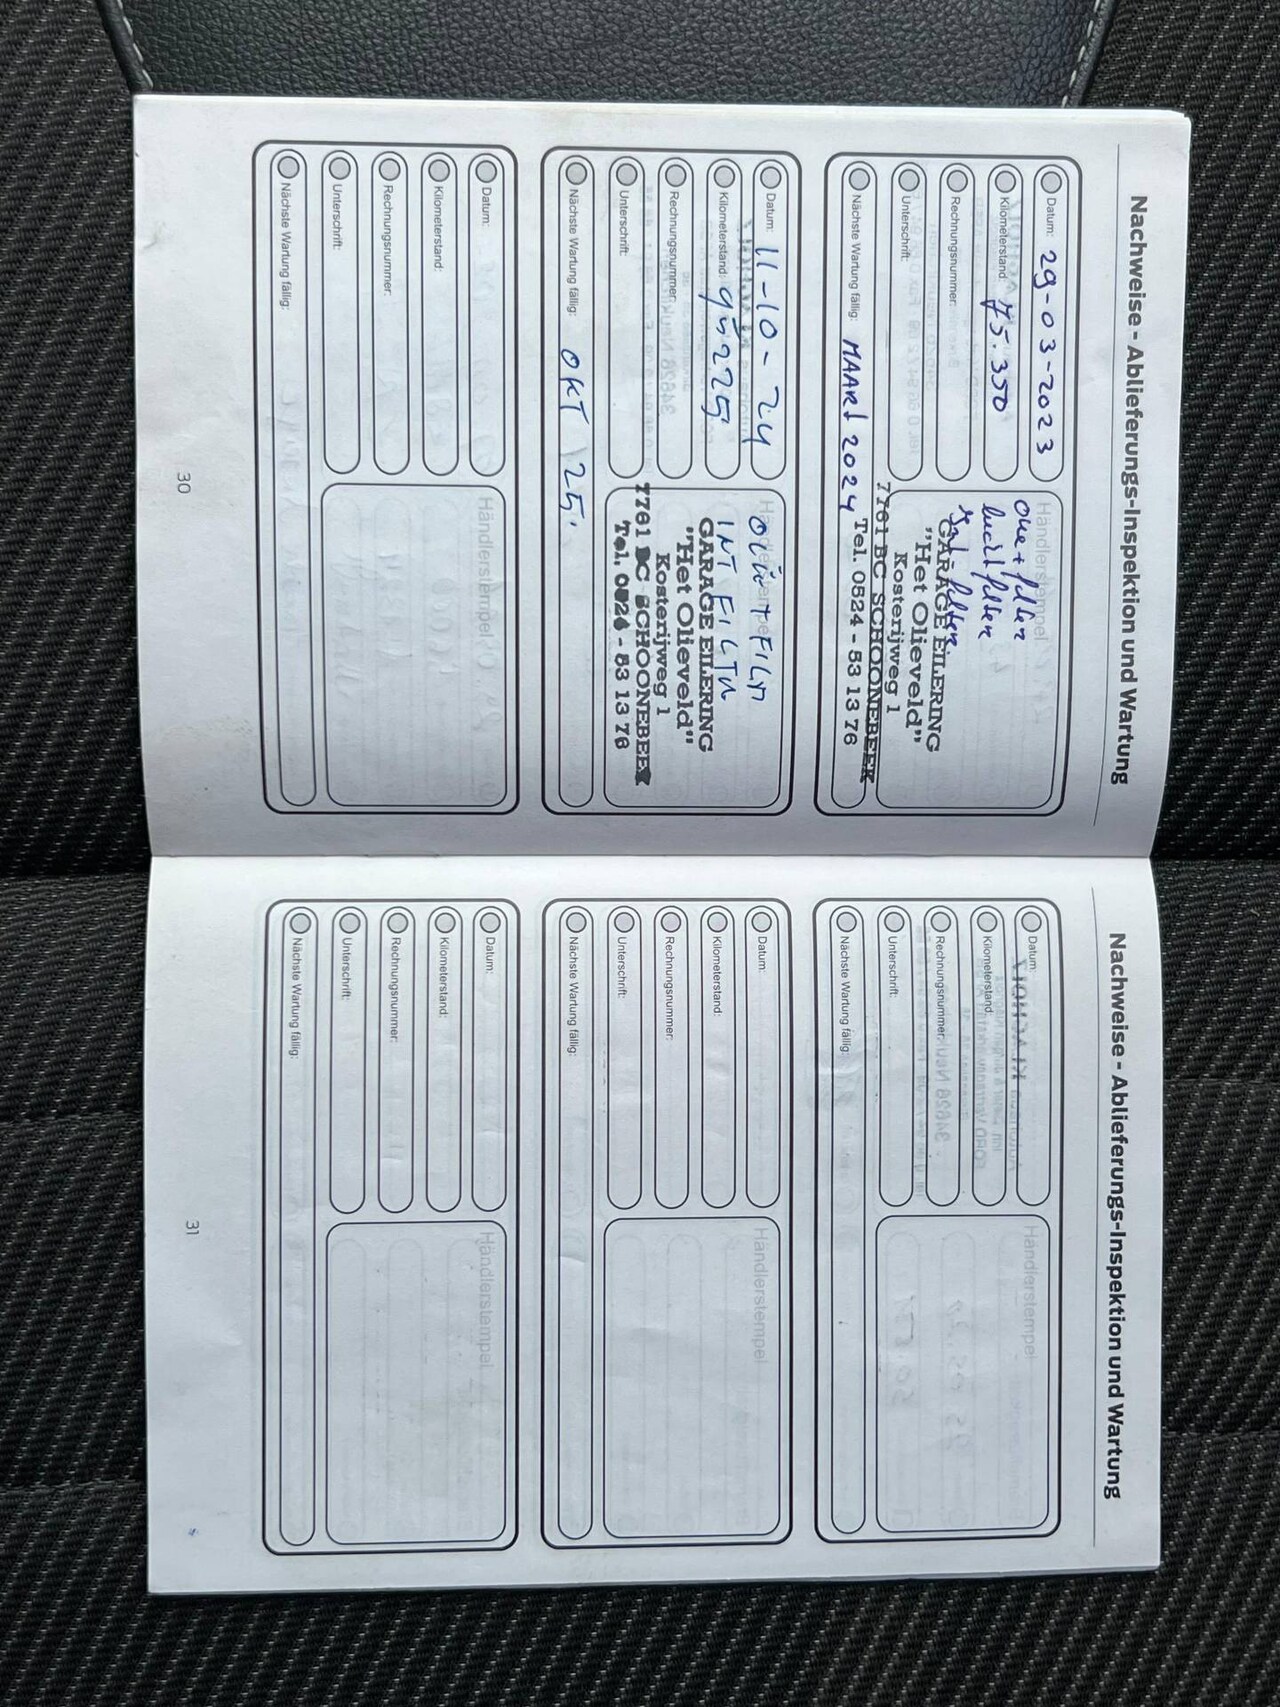 Nachweise - Ablieferungs-Inspektion und Wartung
Datum: 29-03-2023
Kilometerstand: 75.350
Rechnungsnummer:
Unterschrift:
Nächste Wartung fällig: MAART 2024
Händlerstempel
olie + filter
lucht filter
GARAGE EILERING
"Het Olieveld"
Kosterijweg 1
7761 BC SCHOONEBEEK
Tel. 0524 - 53 13 76
Datum: 11-10-24
Kilometerstand: 95225
Rechnungsnummer:
Unterschrift:
Nächste Wartung fällig: OKT 25.
Händlerstempel
INT FILTER
GARAGE EILERING
"Het Olieveld"
Kosterijweg 1
7761 BC SCHOONEBEEK
Tel. 0524 - 53 13 76
Datum:
Kilometerstand:
Rechnungsnummer:
Unterschrift:
Nächste Wartung fällig:
Händlerstempel
30
Nachweise - Ablieferungs-Inspektion und Wartung
Datum:
Kilometerstand:
Rechnungsnummer:
Unterschrift:
Nächste Wartung fällig:
Händlerstempel
Datum:
Kilometerstand:
Rechnungsnummer:
Unterschrift:
Nächste Wartung fällig:
Händlerstempel
Datum:
Kilometerstand:
Rechnungsnummer:
Unterschrift:
Nächste Wartung fällig:
Händlerstempel
31